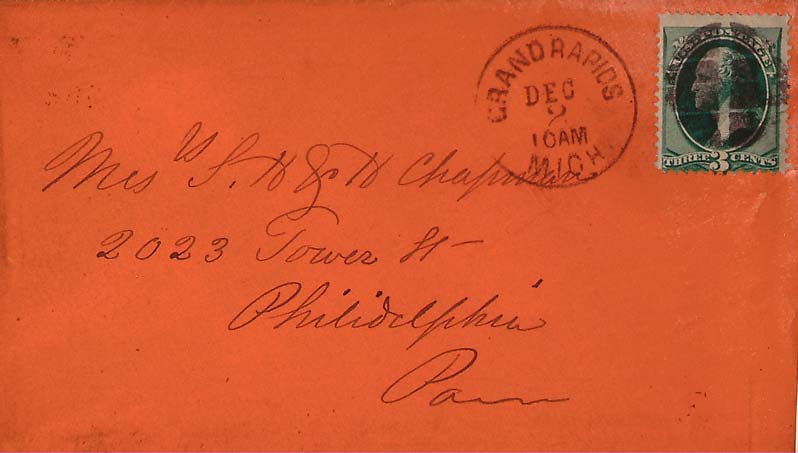 GRAND RAPIDS
DEC
2
10AM
MICH.
U.S. POSTAGE
THREE 3 CENTS
Mess S. H & H Chapman
2023 Tower St
Philidelphia
Penn